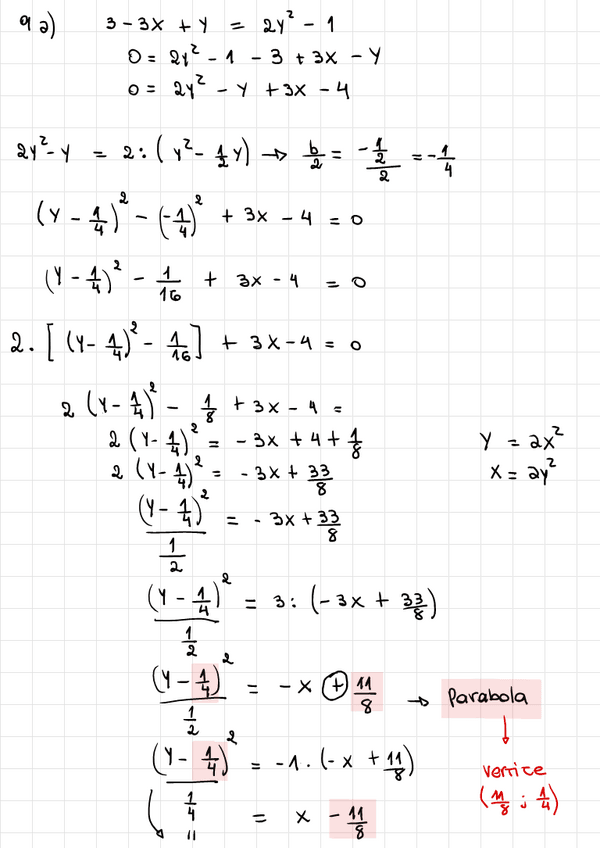 9a) 3 - 3x + y = 2y² - 1
0 = 2y² - 1 - 3 + 3x - y
0 = 2y² - y + 3x - 4
2y² - y = 2 : (y² - 1/2 y) → b/2 = (-1/2)/2 = -1/4
(y - 1/4)² - (-1/4)² + 3x - 4 = 0
(y - 1/4)² - 1/16 + 3x - 4 = 0
2 · [(y - 1/4)² - 1/16] + 3x - 4 = 0
2 (y - 1/4)² - 1/8 + 3x - 4 =
2 (y - 1/4)² = - 3x + 4 + 1/8
y = ax²
2 (y - 1/4)² = - 3x + 33/8
x = ay²
(y - 1/4)²/(1/2) = - 3x + 33/8
(y - 1/4)²/(1/2) = 3 : (-3x + 33/8)
(y - 1/4)²/(1/2) = - x + 11/8 → Parabola
(y - 1/4)²/(1/4) = -1 · (-x + 11/8)
vertice
(11/8 ; 1/4)
" = x - 11/8